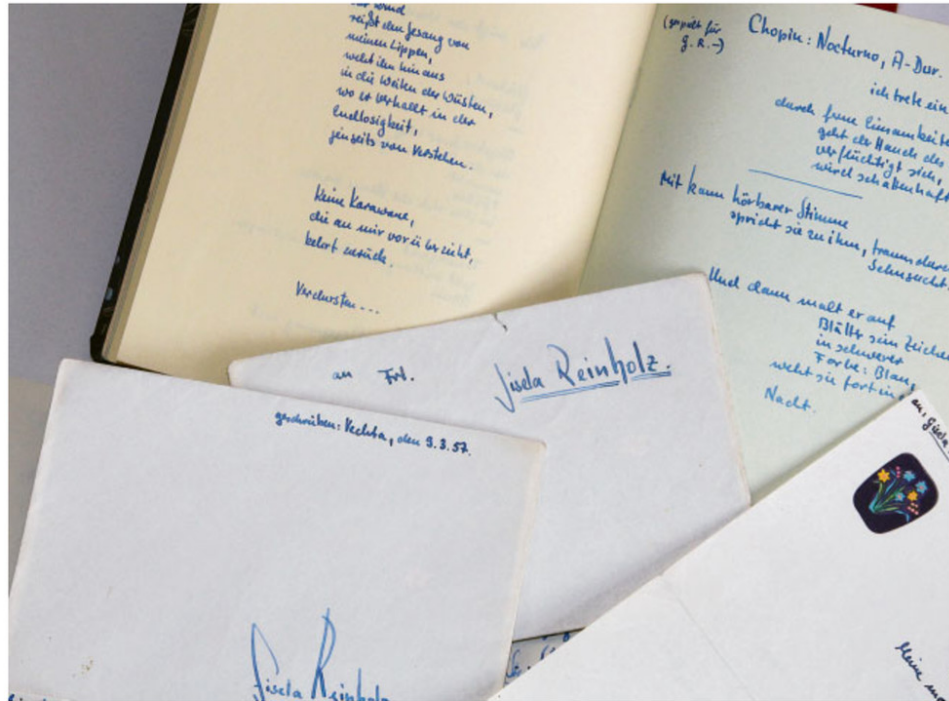 reißt den Gesang von
meinen Lippen,
weht ihn hinaus
in die Weiten der Wüsten,
wo er verhallt in der
Endlosigkeit,
jenseits von Verstehen.
Keine Karawane,
die an mir vorüberzieht,
kehrt zurück.
Verdursten...
(gespielt für
G. R. -)
Chopin: Nocturno, A-Dur.
ich trete ein
durch
geht der Hauch des
verflüchtigt sich,
wird schattenhaft
Mit kaum hörbarer Stimme
spricht sie zu ihm,
Sehnsucht.
Und dann malt er auf
Blätter sein Zeichen
in schwerer
Farbe: Blau,
weht sie fort in
Nacht.
an Frl. Gisela Reinholz.
geschrieben: Vechta, den 9.3.57.
Gisela Reinholz
an: Gisela
Meine